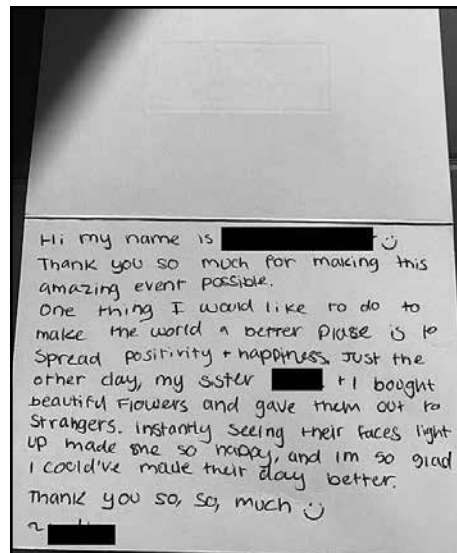 Hi my name is
Thank you so much for making this
amazing event possible.
One thing I would like to do to
make the world a better plase is to
spread positivity + happiness. Just the
other day, my sister + I bought
beautiful flowers and gave them out to
strangers. Instantly seeing their faces light
up made me so happy, and im so glad
I could've made their day better.
Thank you so, so, much
~